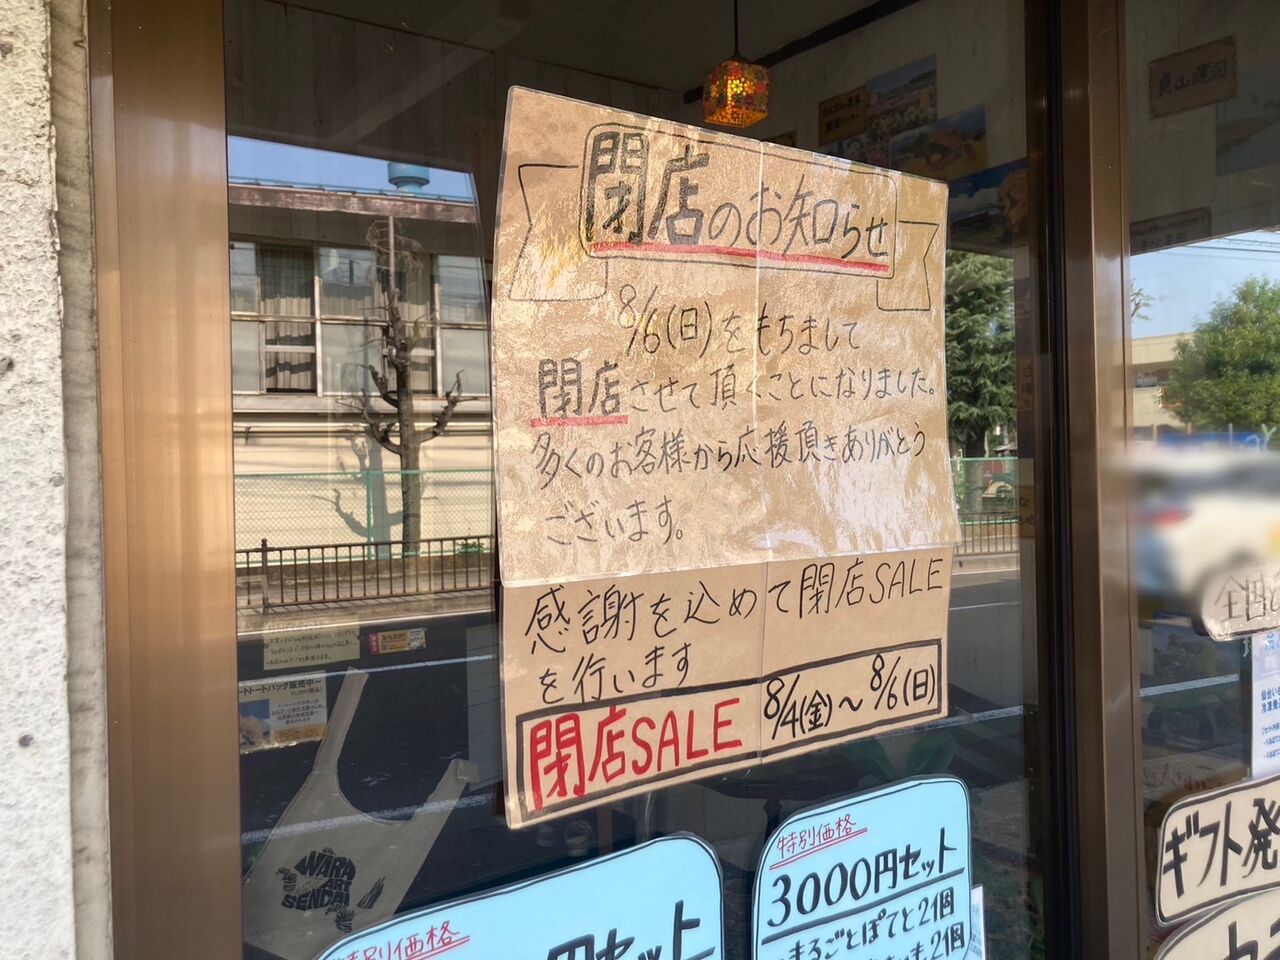 閉店のお知らせ
8/6(日)をもちまして
閉店させて頂くことになりました。
多くのお客様から応援頂きありがとう
ございます。
感謝を込めて閉店SALE
を行います
閉店SALE 8/4(金)〜8/6(日)
特別価格
3000円セット
まるごとぽてと2個
2個
特別価格
円セット
ギフト発
トートバッグ販売中〜
WARA
ART
SENDAI
全国